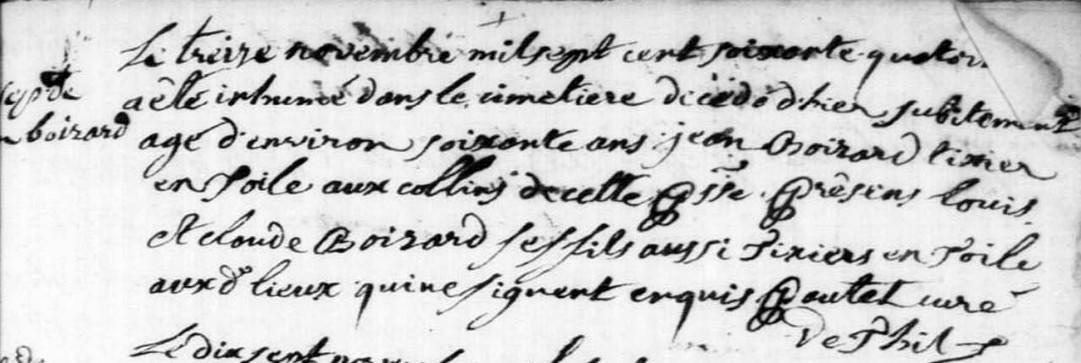 Le treize novembre mil sept cent soixante quator.
sep^re a été inhumé dans le cimetiere décédé d'hier subitement
boizard agé d'environ soixante ans jean Boizard tixier
en Toile aux collins de cette psse présens louis
et claude Boizard ses fils aussi Tixiers en Toile
auxd lieux qui ne signent enquis
curé
de
Le dix sept